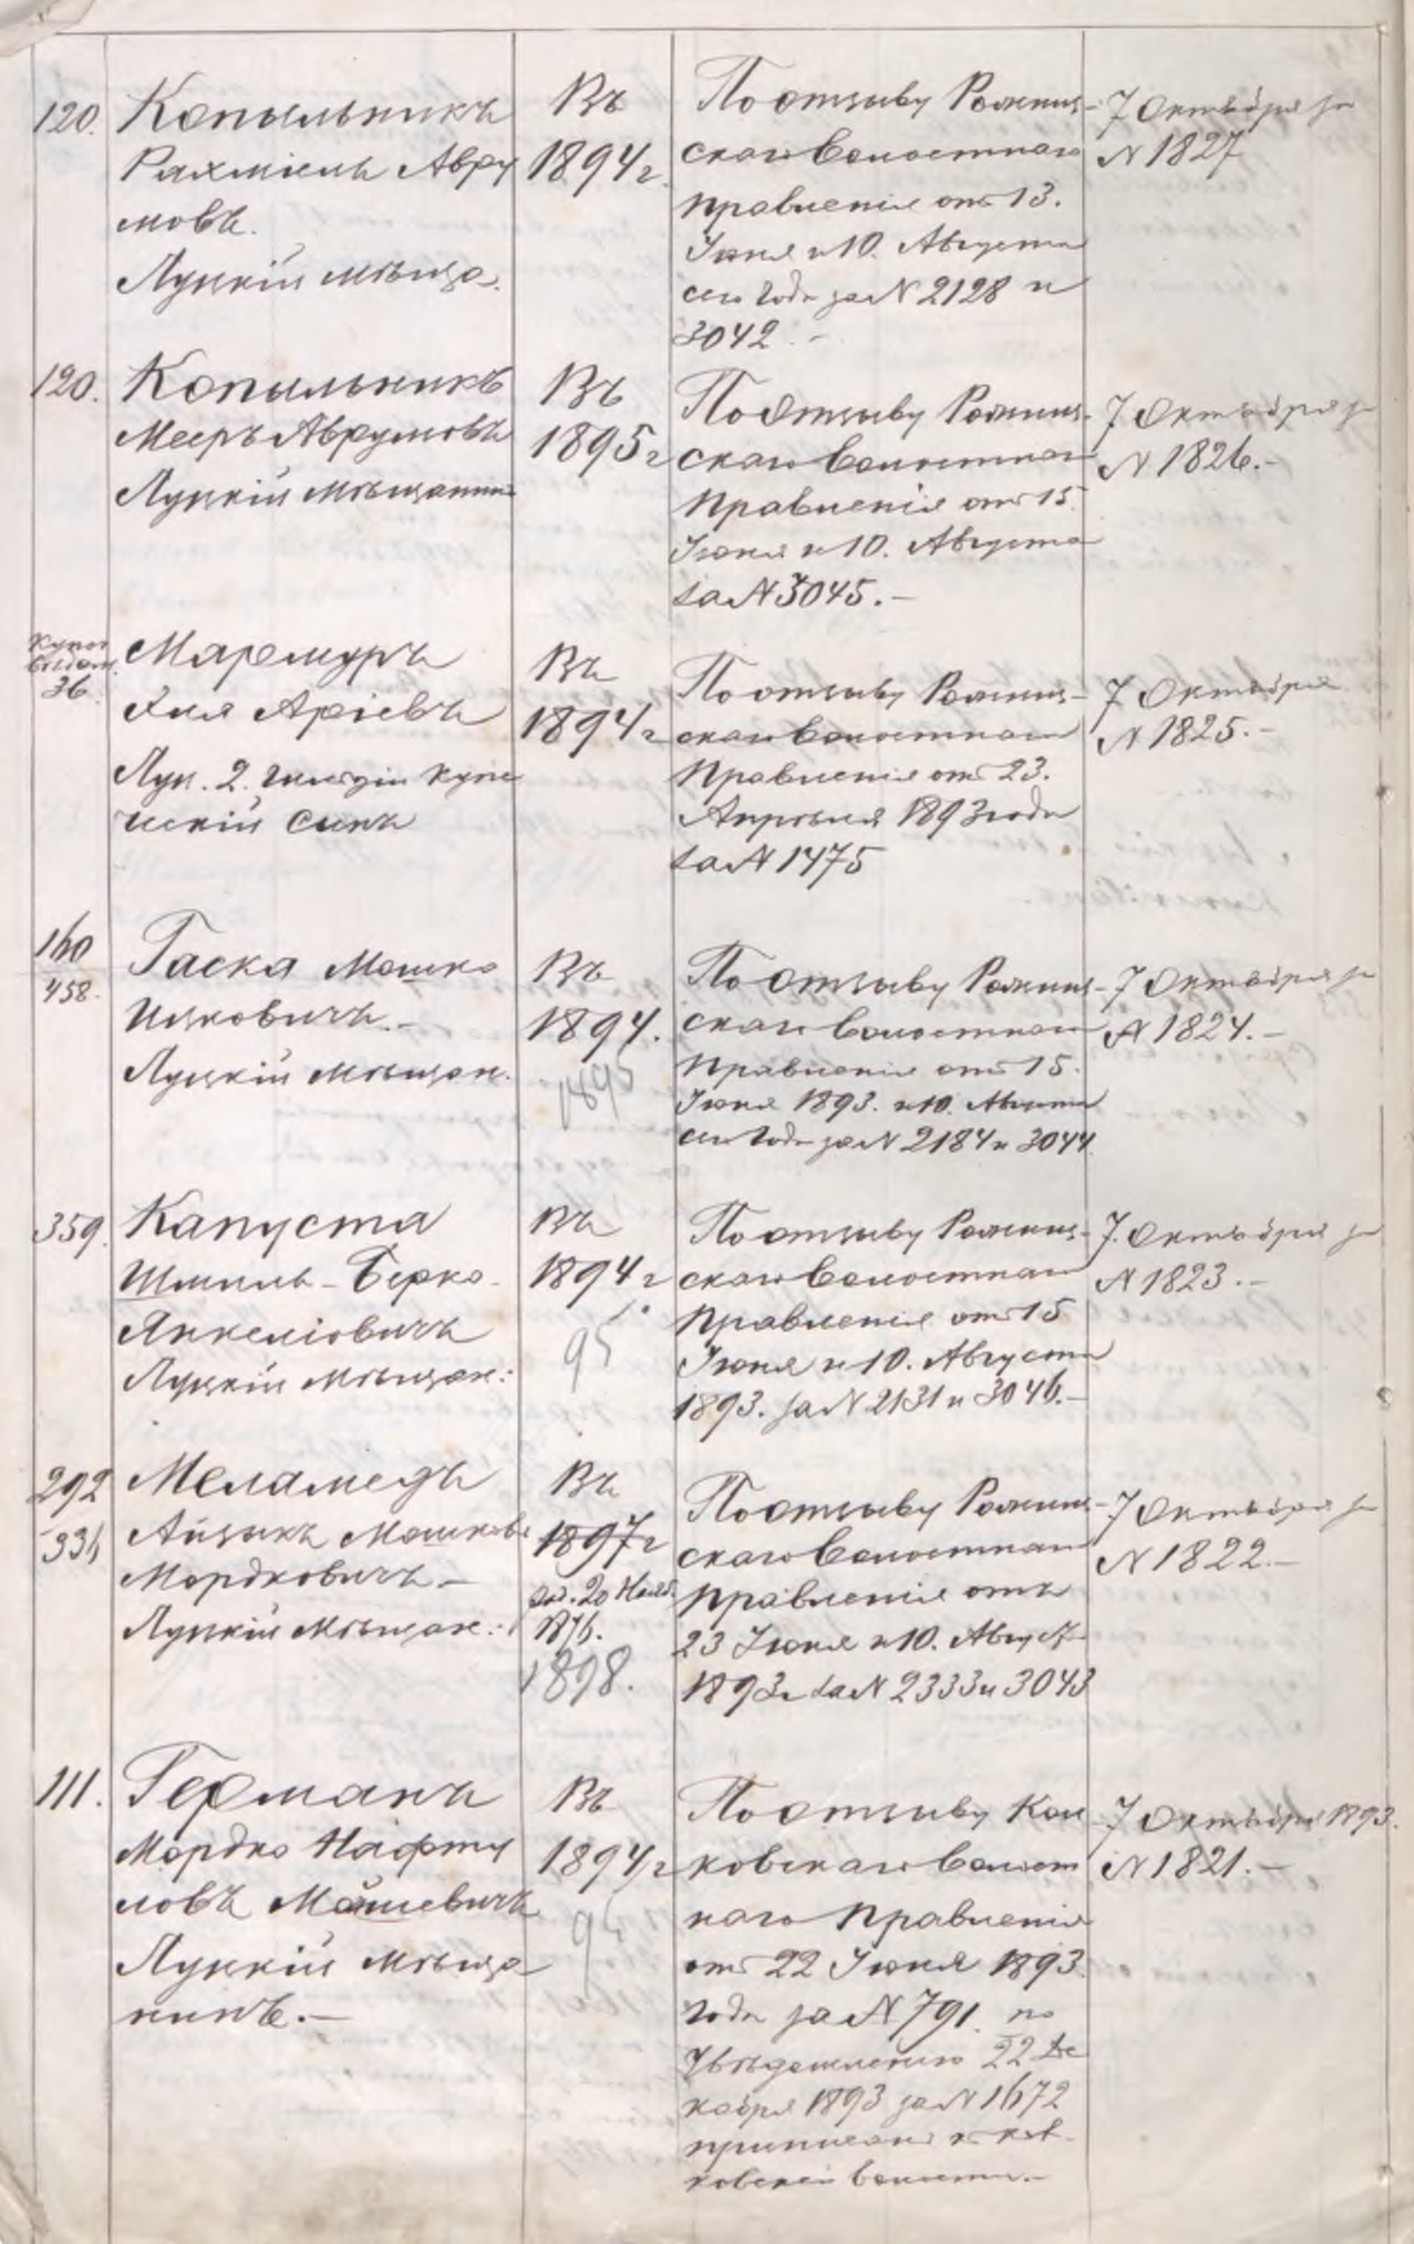 120.
Копыльникъ
Рахмiель Авру
мовъ.
Луцкiй мѣща.
Въ
1894 г.
По отзыву Рожищ-
скаго Волостнаго
Правленiя отъ 13.
Iюня и 10. Августа
сего года за N 2128 и
3042. -
7 Октября за
N 1827
120.
Копыльникъ
Мееръ Аврумовъ
Луцкiй мѣщанинъ
Въ
1895 г
По Отзыву Рожищ-
скаго Волостнаго
Правленiя отъ 15.
Iюня и 10. Августа
за N 3045. -
7 Октября за
N 1826. -
36
Мармуръ
Арiевъ
Луц. 2. гильдiи купе
ческiй сынъ
Въ
1894 г
По отзыву Рожищ-
скаго Волостнаго
Правленiя отъ 23.
Апрѣля 1893 года
за N 1475
7 Октября
N 1825. -
160
458.
Гаска Мошко
Ицковичъ. -
Луцкiй мѣщан.
Въ
1894.
1895
По Отзыву Рожищ-
скаго Волостнаго
Правленiя отъ 15.
Iюня 1893. и 10. Августа
сего года за N 2184 и 3044.
7 Октября за
N 1824. -
359.
Капуста
Шмиль-Берко
Янкелiовичъ
Луцкiй мѣщан:
Въ
1894 г
95
По отзыву Рожищ-
скаго Волостнаго
Правленiя отъ 15
Iюня и 10. Августа
1893. за N 2131 и 3046. -
7. Октября за
N 1823. -
292
336
Меламедъ
Айзыкъ Мошковъ
Мордковичъ -
Луцкiй мѣщан:
Въ
1897 г
род. 20 Нояб.
1876.
1898.
По отзыву Рожищ-
скаго Волостнаго
Правленiя отъ
23 Iюня и 10. Август
1893 г за N 2333 и 3043
7 Октября за
N 1822. -
111.
Германъ
Мордко Нафту
ловъ Мошевичъ
Луцкiй мѣща
нинъ. -
Въ
1894 г
95
По отзыву Кол
ковскаго Волост
наго Правленiя
отъ 22 Iюня 1893
года за N 791. по
Увѣдомленiю 22 Де
кабря 1893 за N 1672
приписанъ къ Кол
ковской волости. -
7 Октября 1893.
N 1821. -